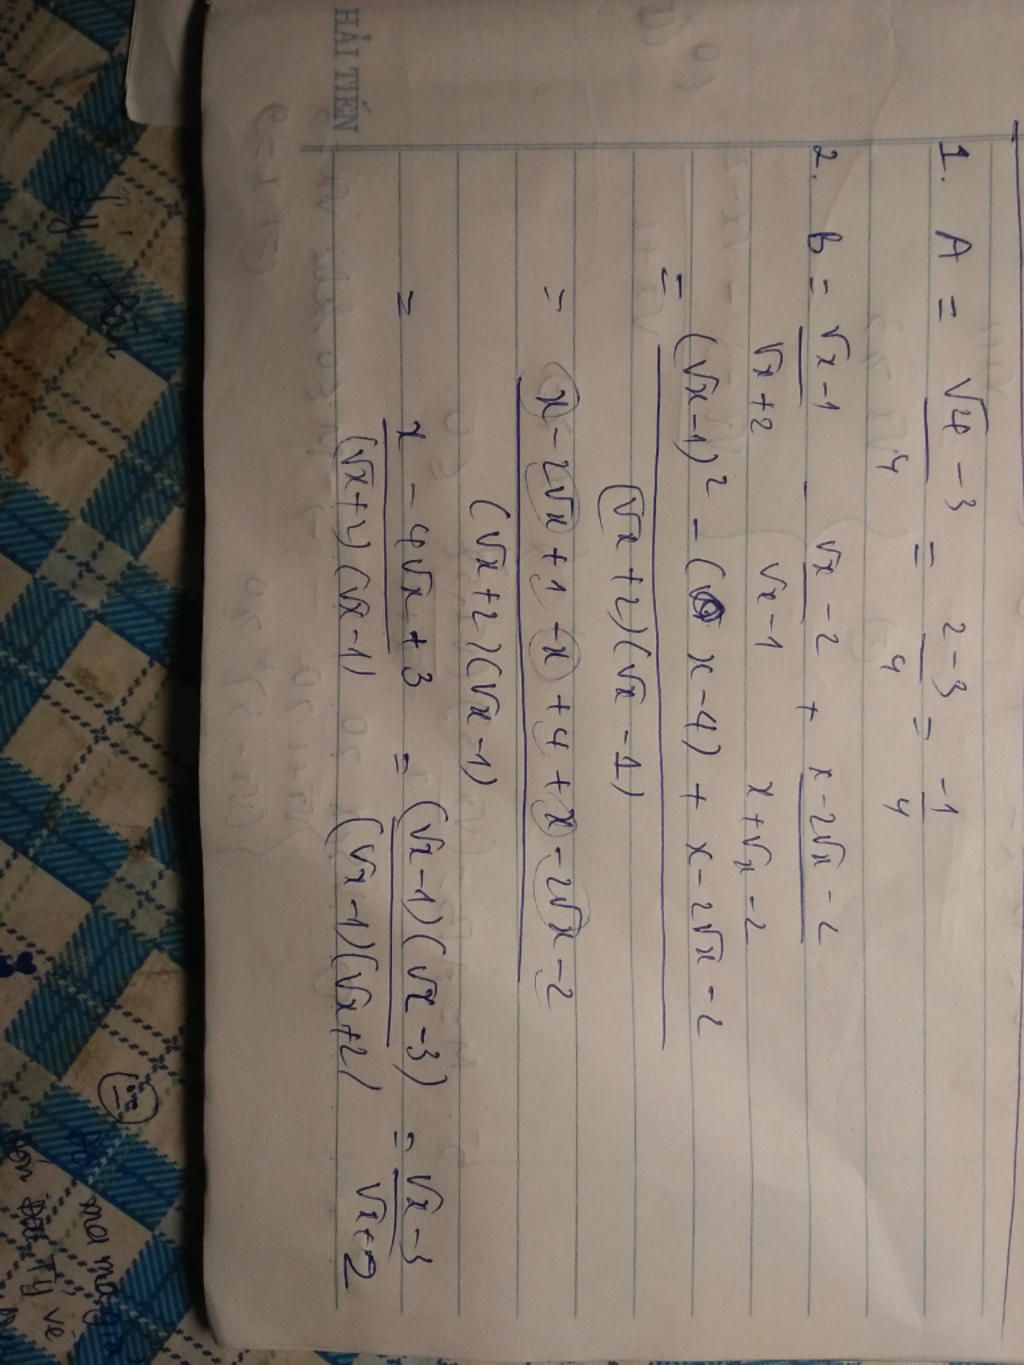 HẢI TIẾN
1. A = √4 - 3 / 4 = 2 - 3 / 4 = -1 / 4
2. B = √x - 1 / √x + 2 - √x - 2 / √x - 1 + x - 2√x - 2 / x + √x - 2
= (√x - 1)² - (x - 4) + x - 2√x - 2
(√x + 2)(√x - 1)
= x - 2√x + 1 - x + 4 + x - 2√x - 2
(√x + 2)(√x - 1)
= x - 4√x + 3 / (√x + 2)(√x - 1) = (√x - 1)(√x - 3) / (√x - 1)(√x + 2) = √x - 3 / √x + 2